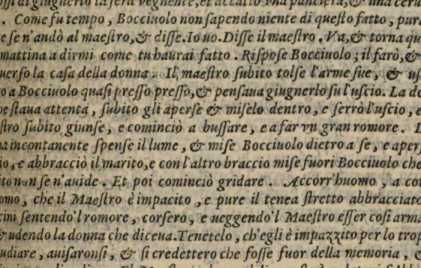 di giugnerlo la sera vegnente, et accattò una panciera, & una cerue
. Come fu tempo, Bocciuolo non sapendo niente di questo fatto, pura
te se n'andò al maestro, & disse. Io uo. Disse il maestro. Va, & torna qu
mattina a dirmi come tu haurai fatto. Rispose Bocciuolo; il farò, &
uerso la casa della donna. Il maestro subito tolse l'arme sue, & us
o a Bocciuolo quasi presso presso, & pensaua giugnerlo su l'uscio. La do
estaua attenta, subito gli aperse & miselo dentro, e serrò l'uscio, e
stro subito giunse, e cominciò a bussare, e a far un gran romore.
incontanente spense il lume, & mise Bocciuolo dietro a se, e aper
io, e abbracciò il marito, e con l'altro braccio mise fuori Bocciuolo che
ito non se n'auide. Et poi cominciò gridare. Accorr'huomo, a co
omo, che il Maestro è impacito, e pure il tenea stretto abbracciato
cini sentendo'l romore, corsero, e ueggendo'l Maestro esser così arma
& udendo la donna che diceua. Tenetelo, ch'egli è impazzito per lo trop
udiare, auisaronsi, & si credettero che fosse fuor della memoria,